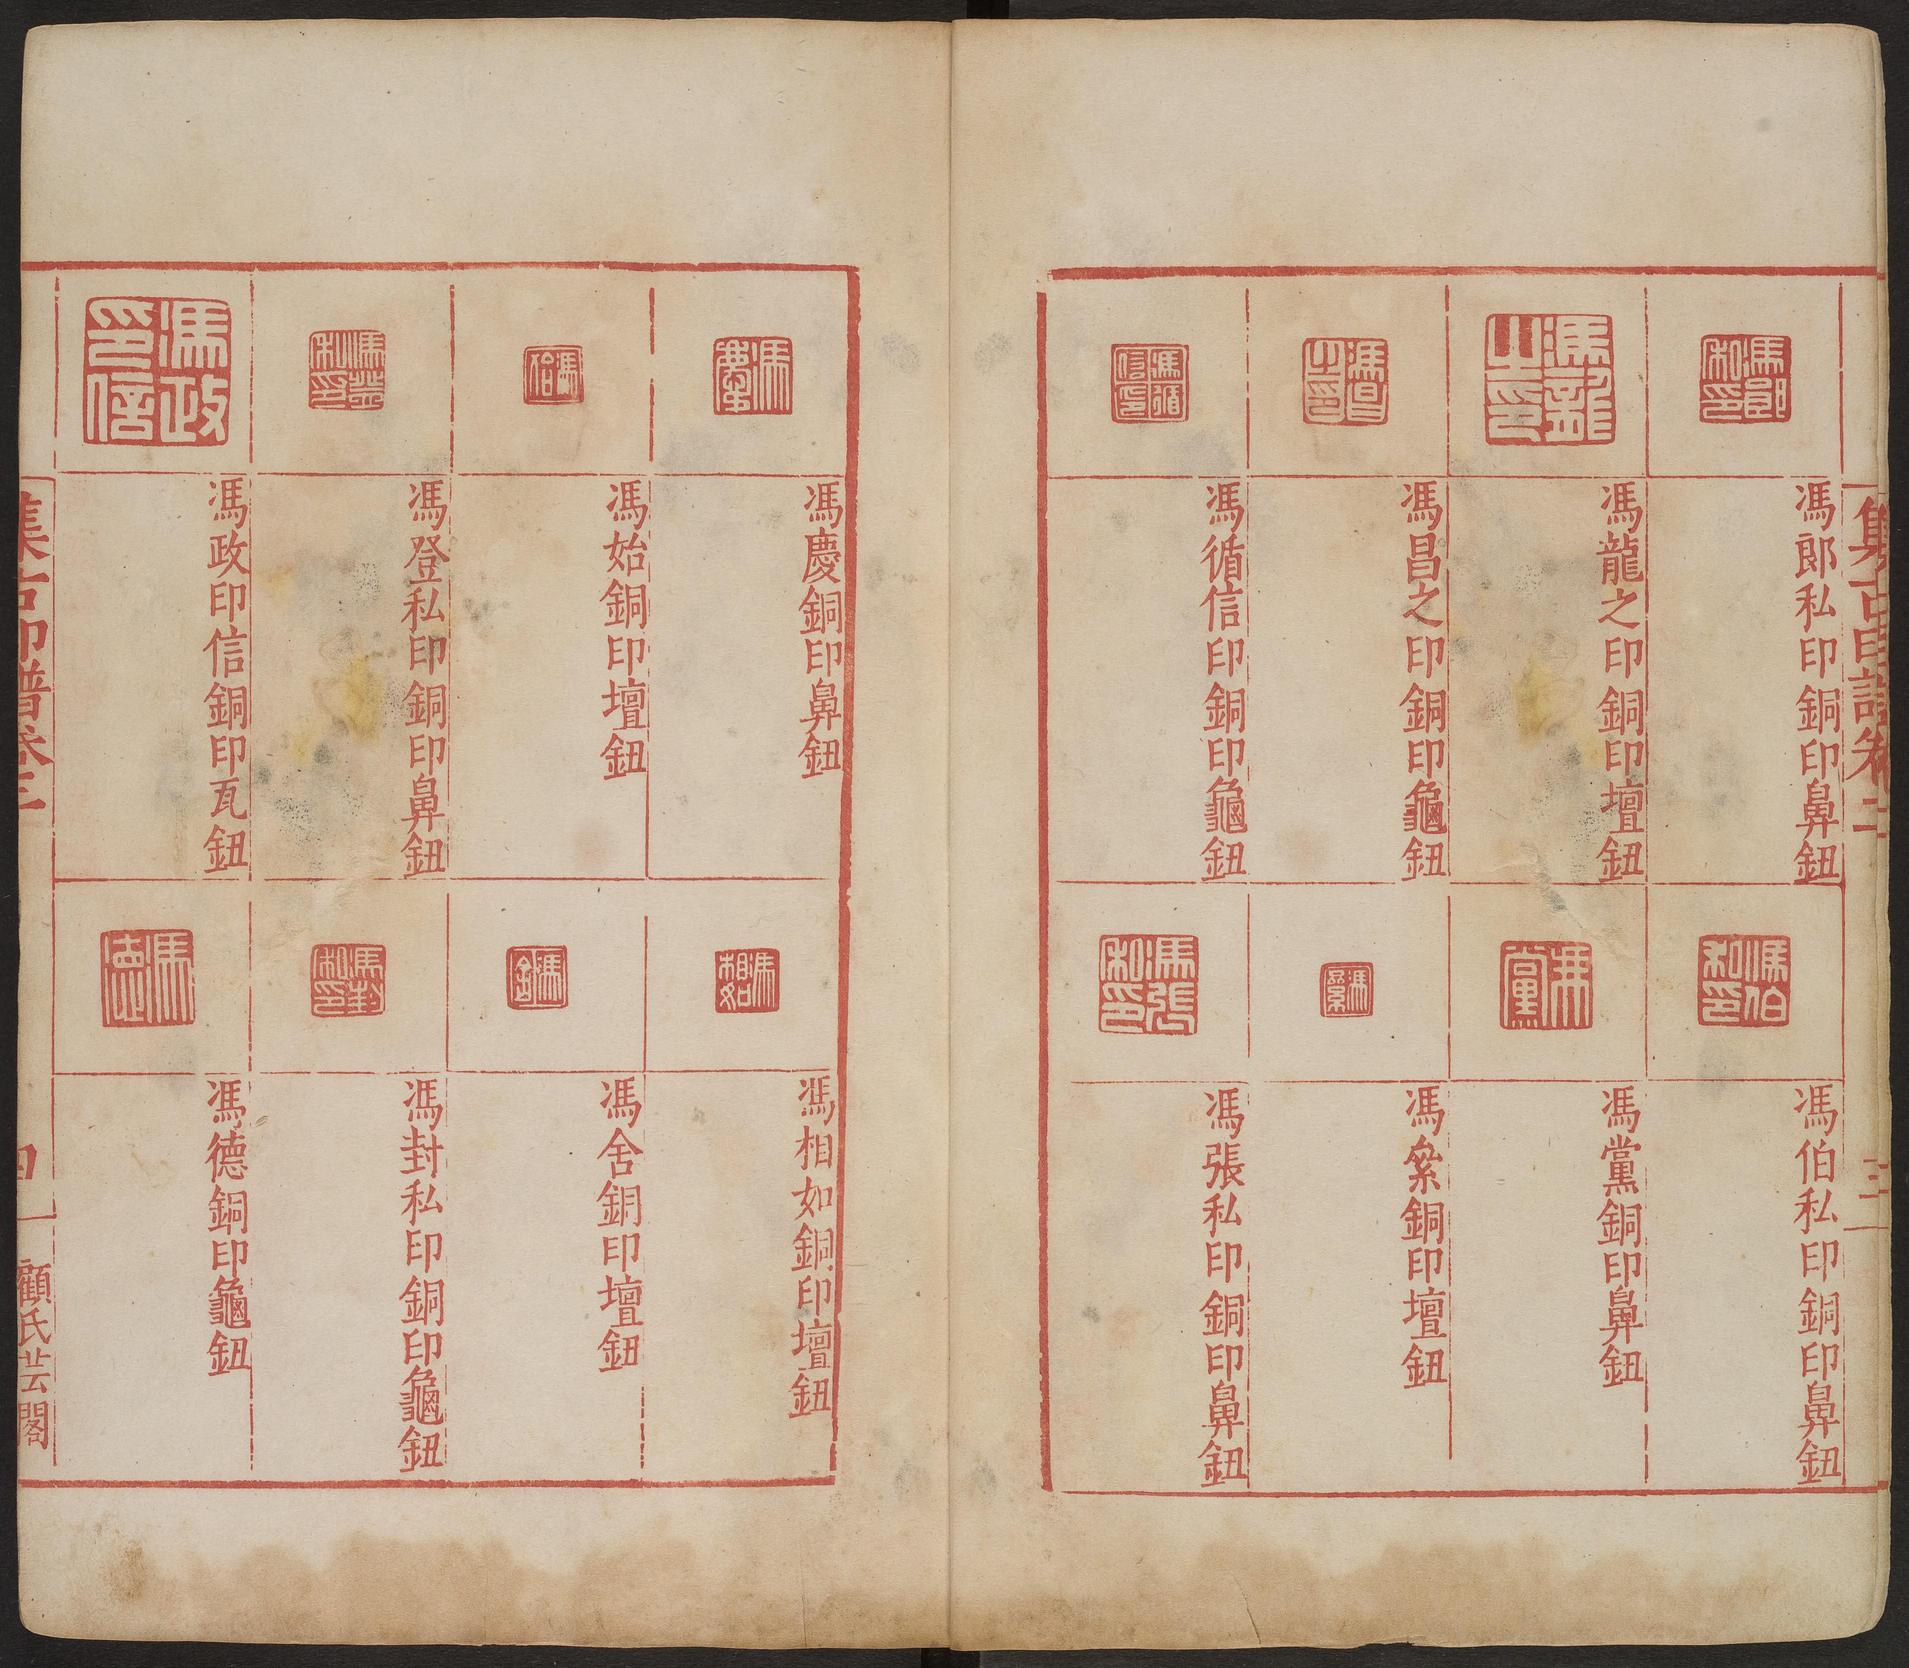 集古印譜卷三
三
馮郎私印銅印鼻鈕
馮龍之印銅印壇鈕
馮昌之印銅印龜鈕
馮循信印銅印龜鈕
馮伯私印銅印鼻鈕
馮黨銅印鼻鈕
馮絫銅印壇鈕
馮張私印銅印鼻鈕
馮慶銅印鼻鈕
馮始銅印壇鈕
馮登私印銅印鼻鈕
馮政印信銅印瓦鈕
馮相如銅印壇鈕
馮舍銅印壇鈕
馮封私印銅印龜鈕
馮德銅印龜鈕
集古印譜卷三
四
顧氏芸閣